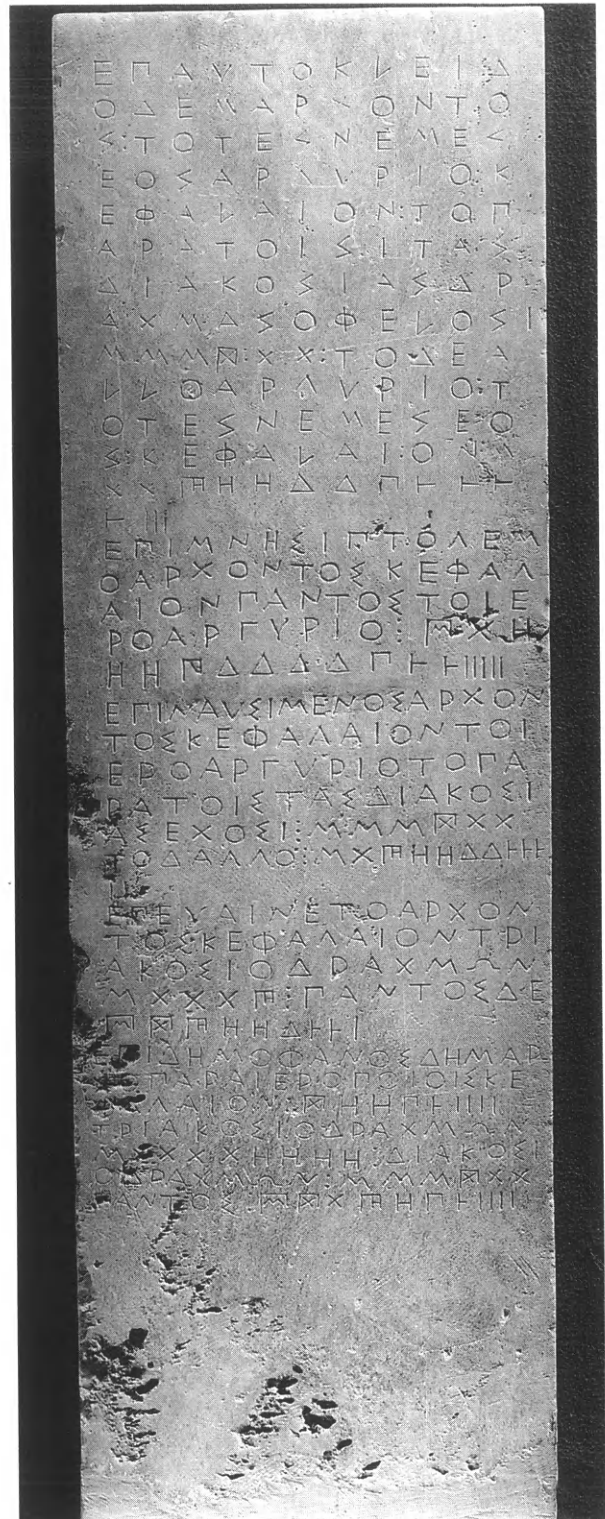 ΕΠΑΥΤΟΚΛΕΙΔ
ΟΔΕΜΑΡΧΟΝΤΟ
Σ:ΤΟΤΕΣΝΕΜΕΣ
ΕΟΣΑΡΓΥΡΙΟ:Κ
ΕΦΑΛΑΙΟΝ:ΤΟΠ
ΑΡΑΤΟΙΣΙΤΑΣ
ΔΙΑΚΟΣΙΑΣΔΡ
ΑΧΜΑΣΟΦΕΛΟΣΙ
ΜΜΜ𐅆ΧΧ:ΤΟΔΕΑ
ΛΛΟΑΡΓΥΡΙΟ:Τ
ΟΤΕΣΝΕΜΕΣΕΟ
ΣΚΕΦΑΛΑΙ:ΟΝΜ
ΧΧ𐅅ΗΗΔΔΠ𐅂𐅂𐅂
𐅂ΙΙΙ
ΕΠΙΜΝΗΣΙΠΤΟΛΕΜ
ΟΑΡΧΟΝΤΟΣΚΕΦΑΛ
ΑΙΟΝΠΑΝΤΟΣΤΟΙΕ
ΡΟΑΡΓΥΡΙΟ:𐅇ΜΧΗ
ΗΗ𐅄ΔΔΔΔΠ𐅂𐅂ΙΙΙΙΙ
ΕΠΙΝΑΥΣΙΜΕΝΟΣΑΡΧΟΝ
ΤΟΣΚΕΦΑΛΑΙΟΝΤΟΙ
ΕΡΟΑΡΓΥΡΙΟΤΟΠΑ
ΡΑΤΟΙΣΤΑΣΔΙΑΚΟΣΙ
ΑΣΕΧΟΣΙ:ΜΜΜ𐅆ΧΧ
ΤΟΔΑΛΛΟ:ΜΧ𐅅ΗΗΔΔ𐅂𐅂𐅂
ΕΠΕΥΑΙΝΕΤΟΑΡΧΟΝ
ΤΟΣΚΕΦΑΛΑΙΟΝΤΡΙ
ΑΚΟΣΙΟΔΡΑΧΜΩΝ
ΜΧΧΧ𐅅:ΠΑΝΤΟΣΔΕ
𐅇𐅆𐅅ΗΗΔ𐅂𐅂Ι
ΕΠΙΔΗΜΟΦΑΝΟΣΔΗΜΑΡ
ΟΠΑΡΑΙΕΡΟΠΟΙΟΙΣΚΕ
ΛΑΙΟΝ:𐅆ΗΗΠ𐅂ΙΙΙΙ
ΤΡΙΑΚΟΣΙΟΔΡΑΧΜΩΝ
ΜΧΧΧΗΗΗΗ:ΔΙΑΚΟΣΙ
ΟΔΡΑΧΜΩΝ:ΜΜΜ𐅆ΧΧ
ΠΑΝΤΟΣ:𐅇𐅆Χ𐅅ΗΠ𐅂ΙΙΙΙ